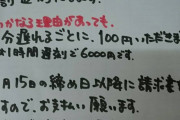 かなる理由があっても、
分遅れるごとに、100円いただきま
1時間遅刻で6000円です。
月15日の締め日以降に請求書
すので、お支払い願います。